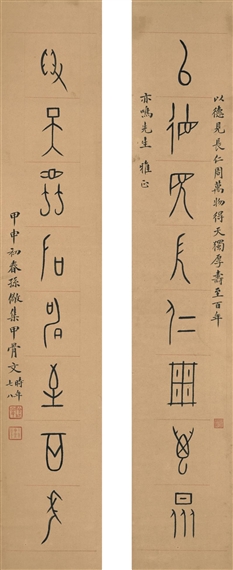 以德見長仁周萬物得天獨厚壽至百年
以德見長仁周萬物
亦鳴先生 雅正
得天獨厚壽至百年
甲申初春孫儆集甲骨文 時年
七八